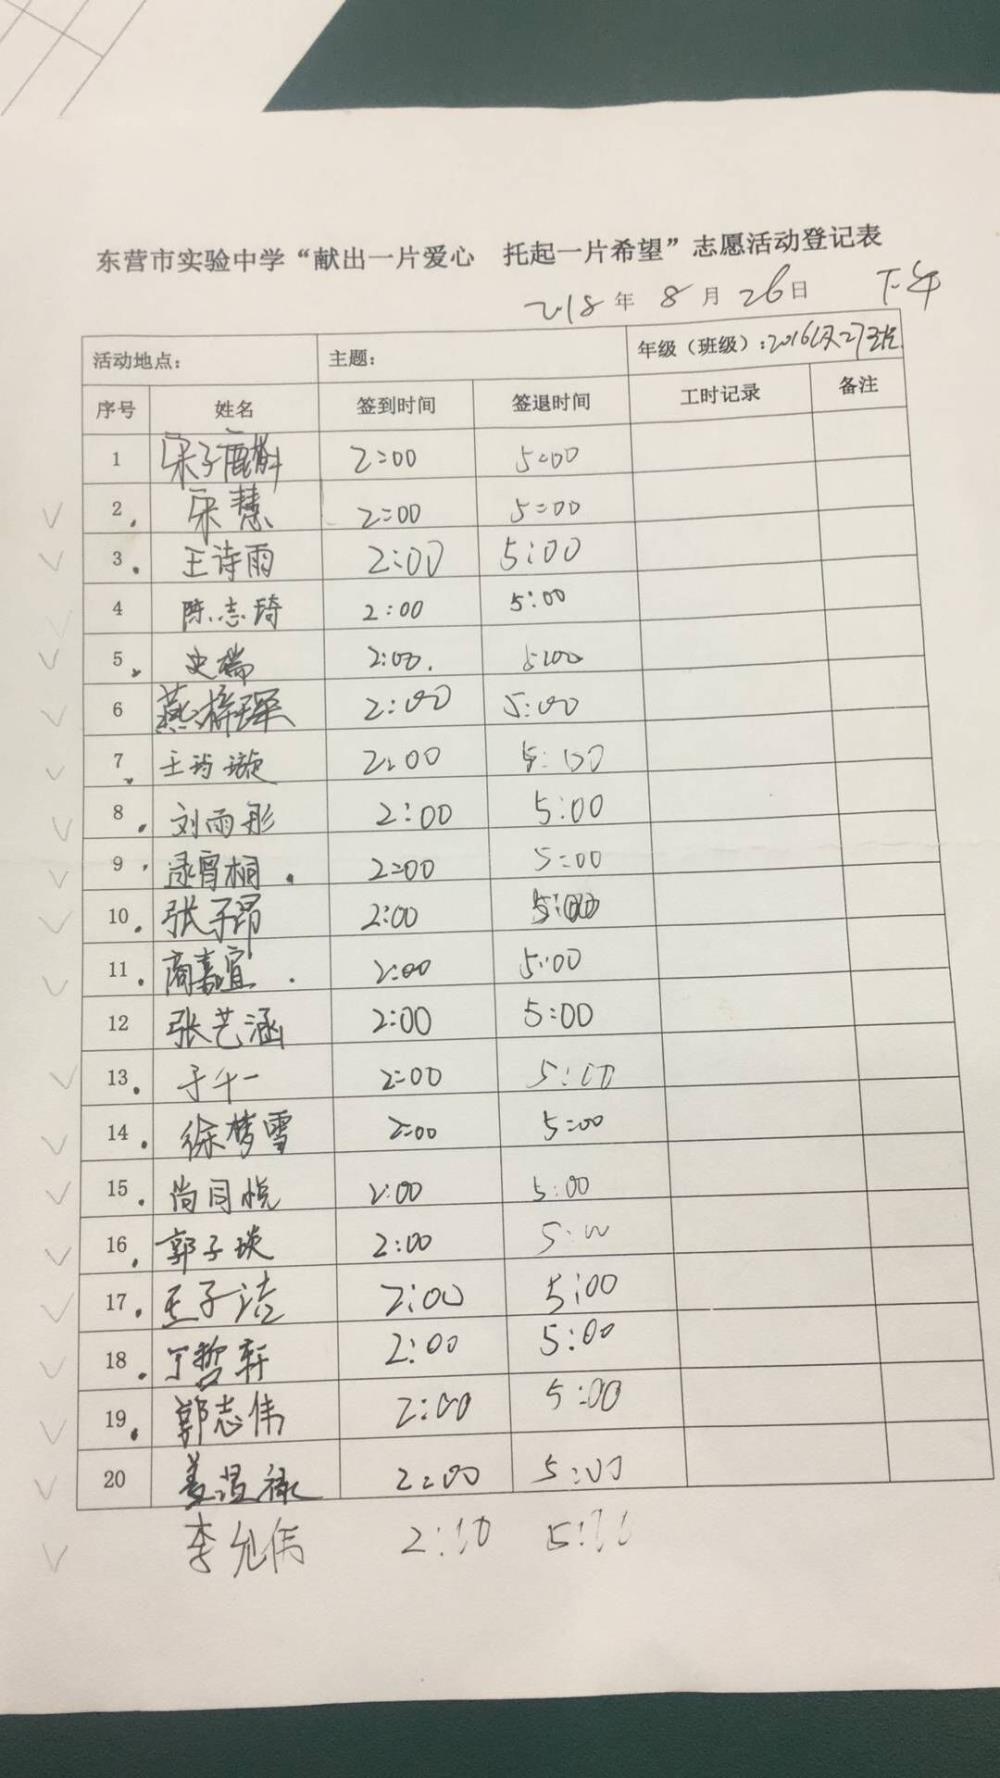 东营市实验中学“献出一片爱心 托起一片希望”志愿活动登记表
2018年 8月26日 下午
活动地点: 主题: 年级（班级）:2016级27班
序号 姓名 签到时间 签退时间 工时记录 备注
1 宋子 2:00 5:00
2 宋慧 2:00 5:00
3 王诗雨 2:00 5:00
4 陈志琦 2:00 5:00
5 史瑞 2:00 5:00
6 燕梓琛 2:00 5:00
7 王 璇 2:00 5:00
8 刘雨彤 2:00 5:00
9 逯宵桐 2:00 5:00
10 张子昂 2:00 5:00
11 商嘉宜 2:00 5:00
12 张艺涵 2:00 5:00
13 于千一 2:00 5:00
14 徐梦雪 2:00 5:00
15 尚同悦 2:00 5:00
16 郭子琰 2:00 5:00
17 王子洁 2:00 5:00
18 丁哲轩 2:00 5:00
19 郭志伟 2:00 5:00
20 姜温禄 2:00 5:00
李允伟 2:00 5:00